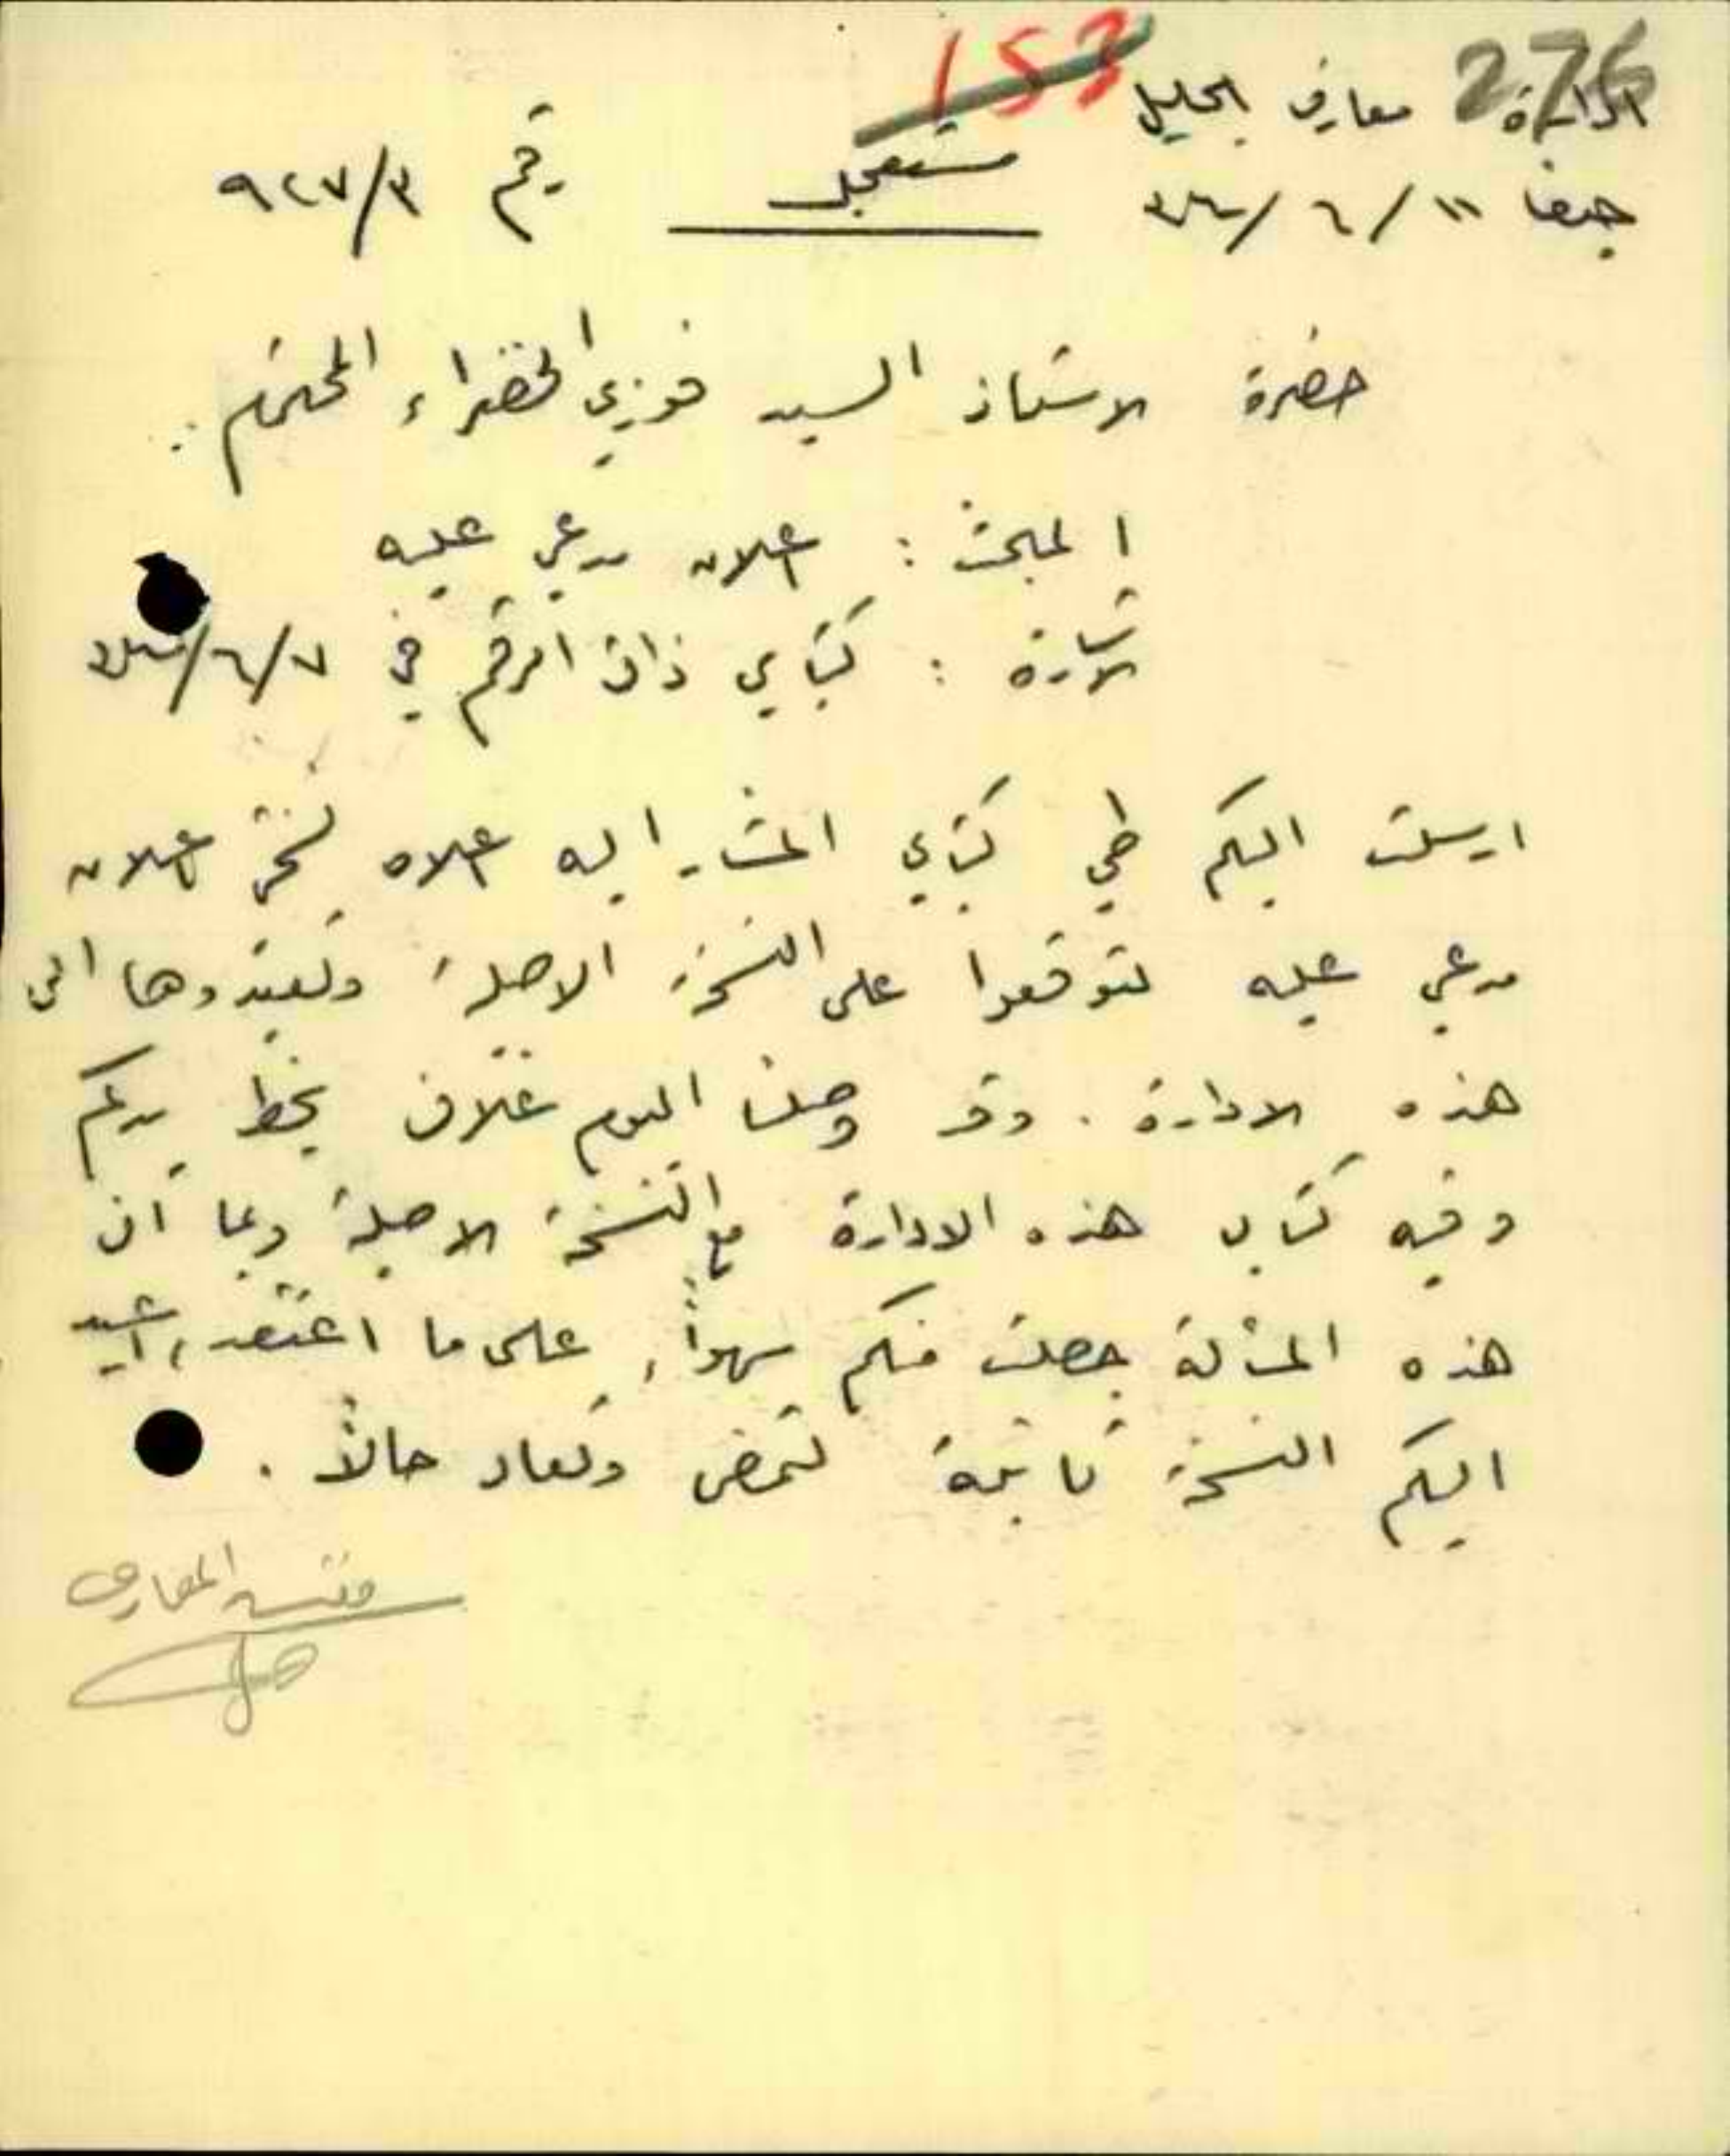 153 276
ادارة معارف الجليل
حيفا ١١/٦/ مستعجل رقم ٩٢٧/٣
حضرة الاستاذ السيد فوزي الخضراء المحترم
المبحث : اعلان مدعى عليه
الاشارة : كتابي ذات الرقم في ٧/٦/
ارسلت اليكم طي كتابي المشار اليه اعلاه نسختي اعلان
مدعى عليه لتوقعوا على النسخة الاصلية وتعيدوها الى
هذه الادارة . وقد وصلنا اليوم غلاف بخط يدكم
وفيه كتاب هذه الادارة مع النسخة الاصلية وبما ان
هذه المسألة حصلت منكم سهواً، على ما اعتقد، اعيد
اليكم النسخة ثانية لتمضى وتعاد حالاً .
مفتش المعارف